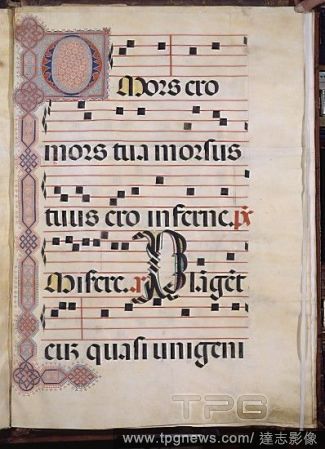 O
Mors ero
mors tua morsus
tuus ero inferne. ps
Misere. a Plaget
eum quasi unigeni
TPG
www.tpgnews.com/ 達志影像